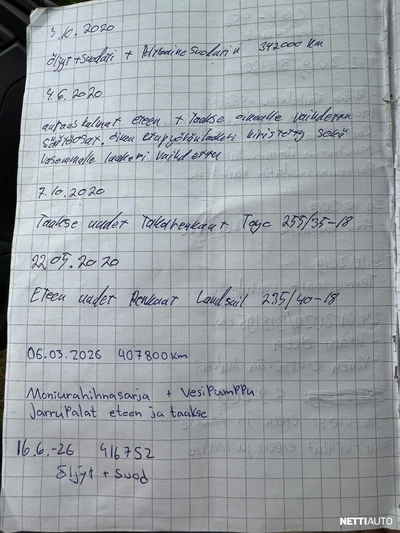 3.10.2020
Öljyt + suodatin + Polttoaine suodatin 342000 km
4.6.2020
eteen + Taakse oikealle vaihdettu
säätöosat, oikea etupyöränlaakeri kiristetty sekä
vasemmalle laakeri vaihdettu
7.10.2020
Taakse uudet Takarenkaat Toyo 255/35-18
22.05.2020
Eteen uudet Renkaat Landsail 235/40-18
06.03.2026 407800 km
Moniurahihnasarja + Vesipumppu
Jarrupalat eteen ja taakse
16.6.-26 416752
Öljyt + suod
NETTIAUTO